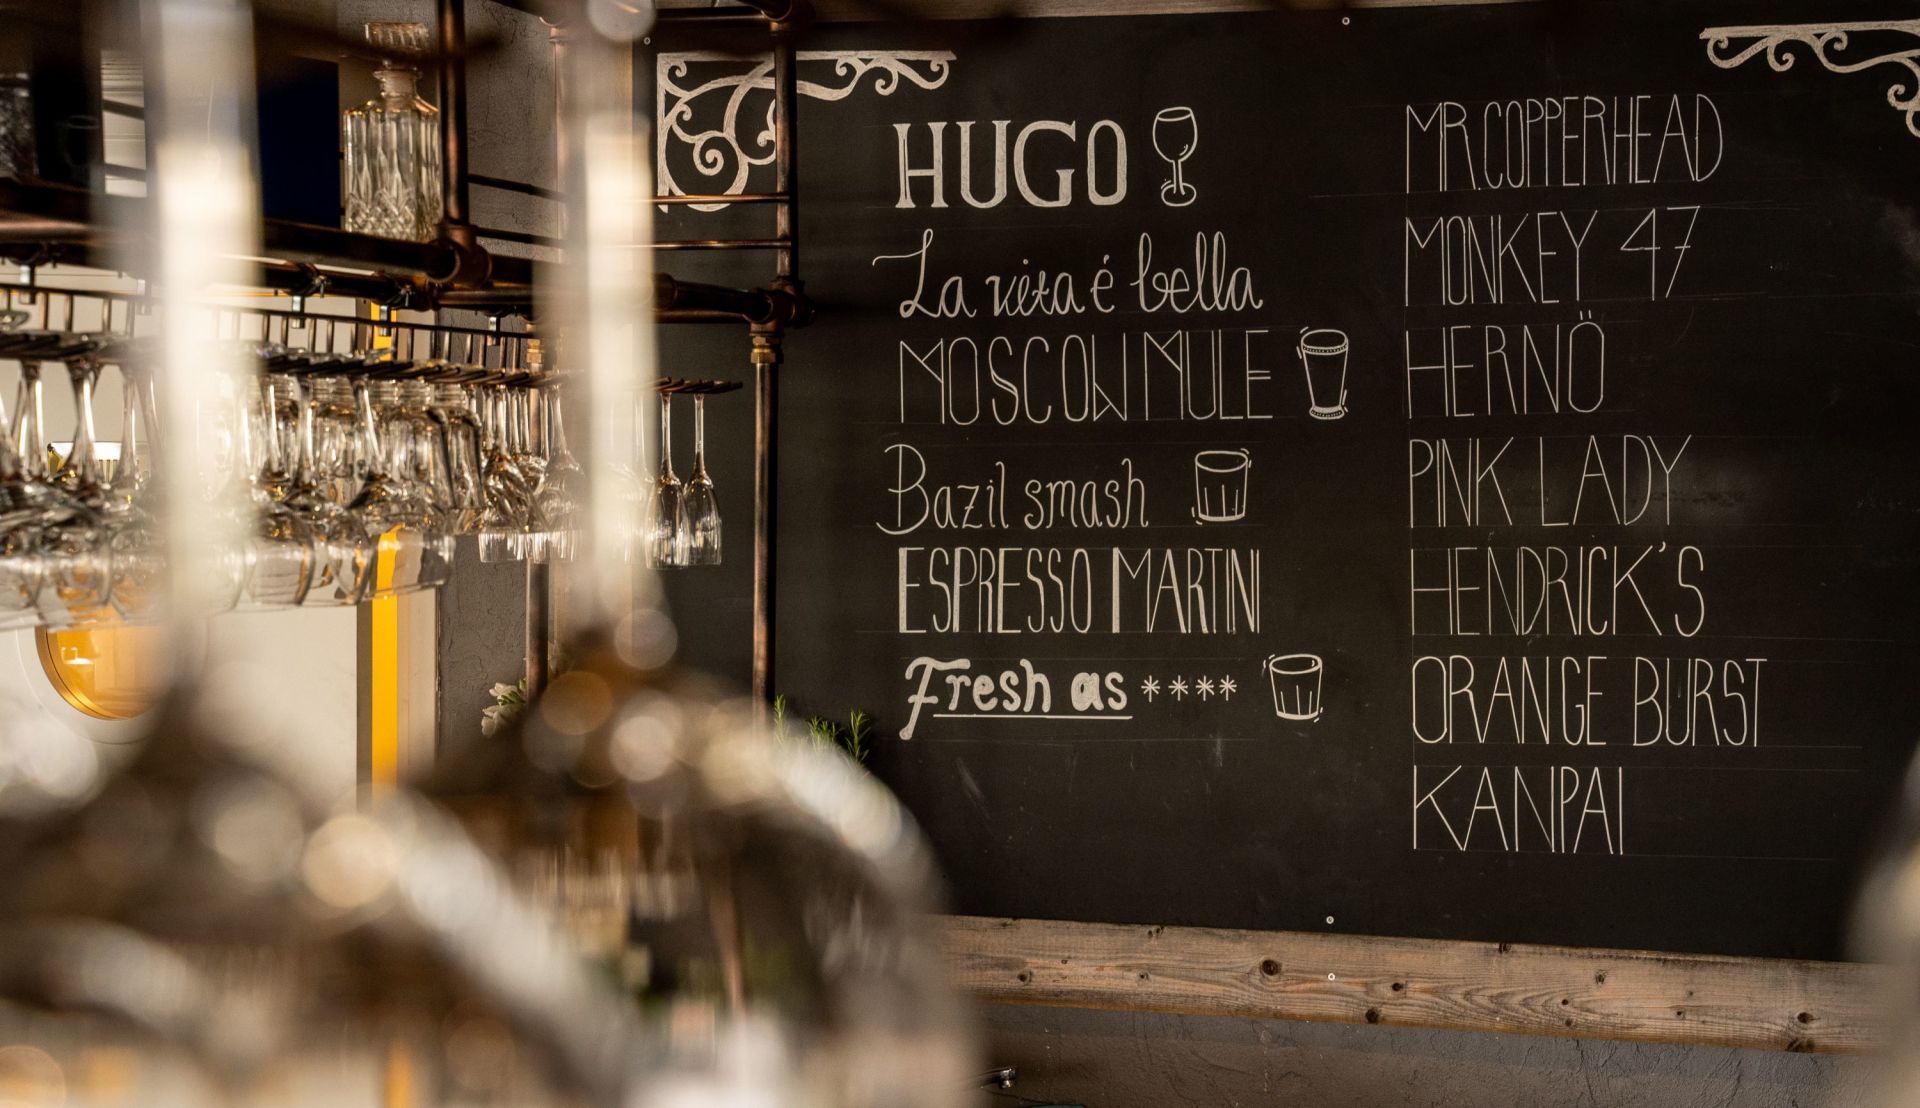 HUGO
La vita é bella
MOSCOW MULE
Bazil smash
ESPRESSO MARTINI
Fresh as ****
MR.COPPERHEAD
MONKEY 47
HERNÖ
PINK LADY
HENDRICK'S
ORANGE BURST
KANPAI